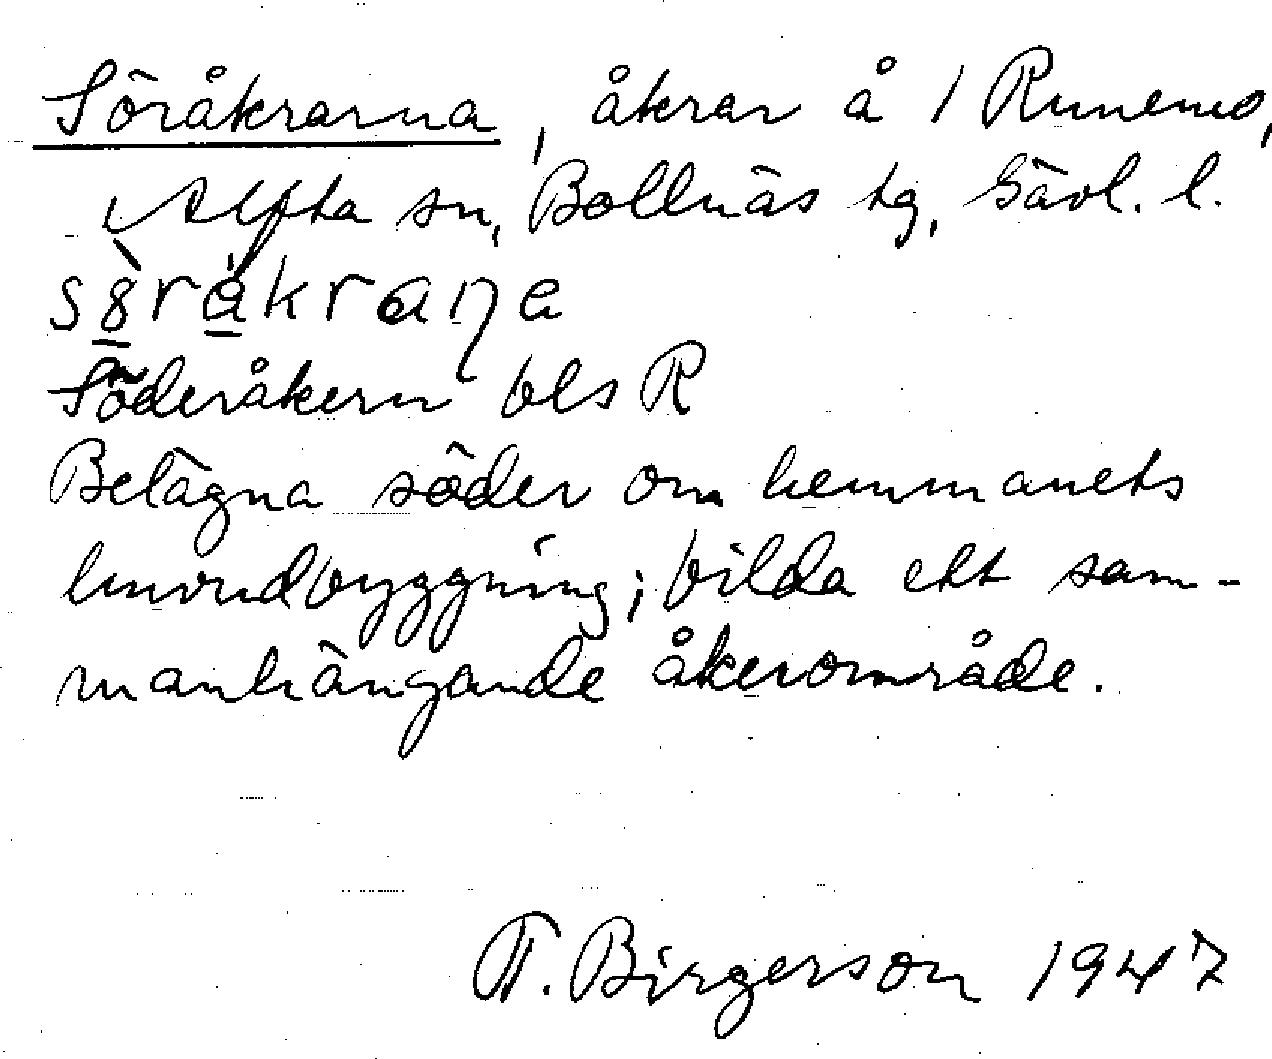 Söråkrarna, åkrar å 1 Runemo,
Alfta sn, Bollnäs tg, Gävl. l.
Söderåkern bls R
Belägna söder om hemmanets
huvudbyggning; bilda ett sam-
manhängande åkerområde.
T. Birgerson 1947